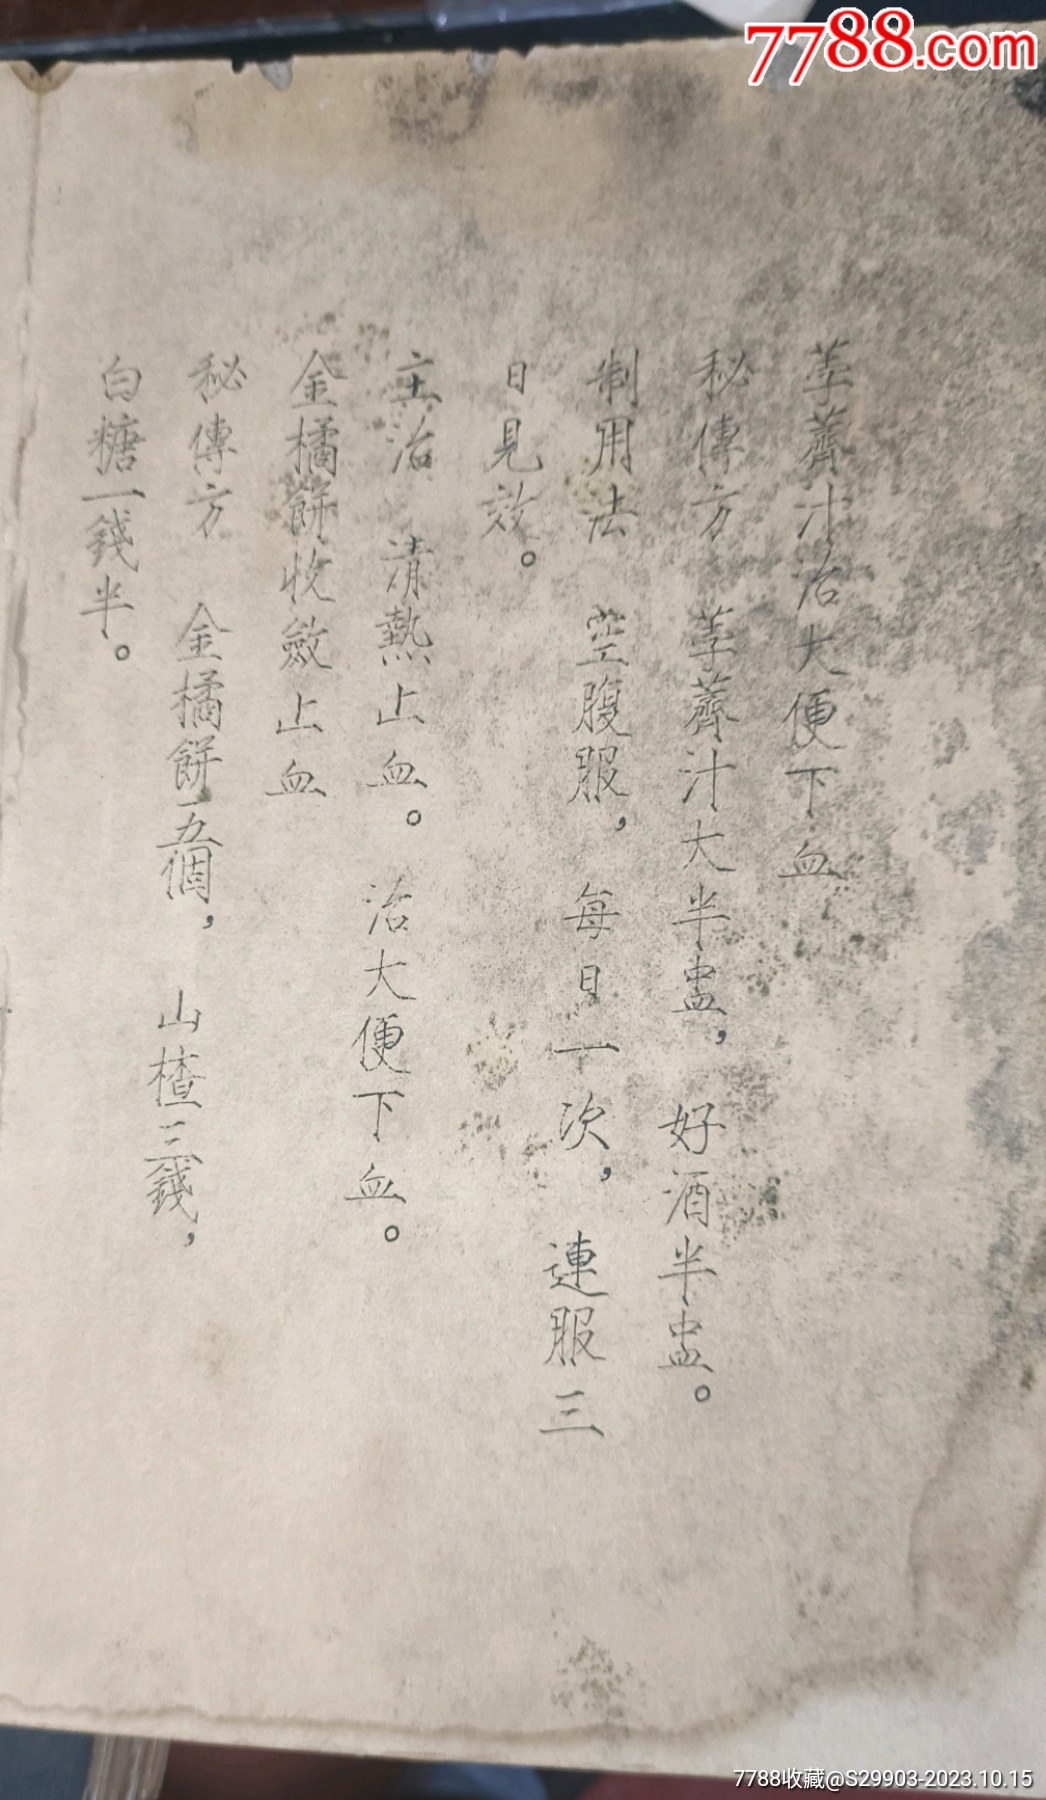 7788.com
荸薺汁治大便下血
秘傳方 荸薺汁大半盅， 好酒半盅。
制用法 空腹服， 每日一次， 連服三
日見效。
主治 清熱止血。 治大便下血。
金橘餅收斂止血
秘傳方 金橘餅五個， 山楂三錢，
白糖一錢半。
7788收藏@S29903-2023.10.15